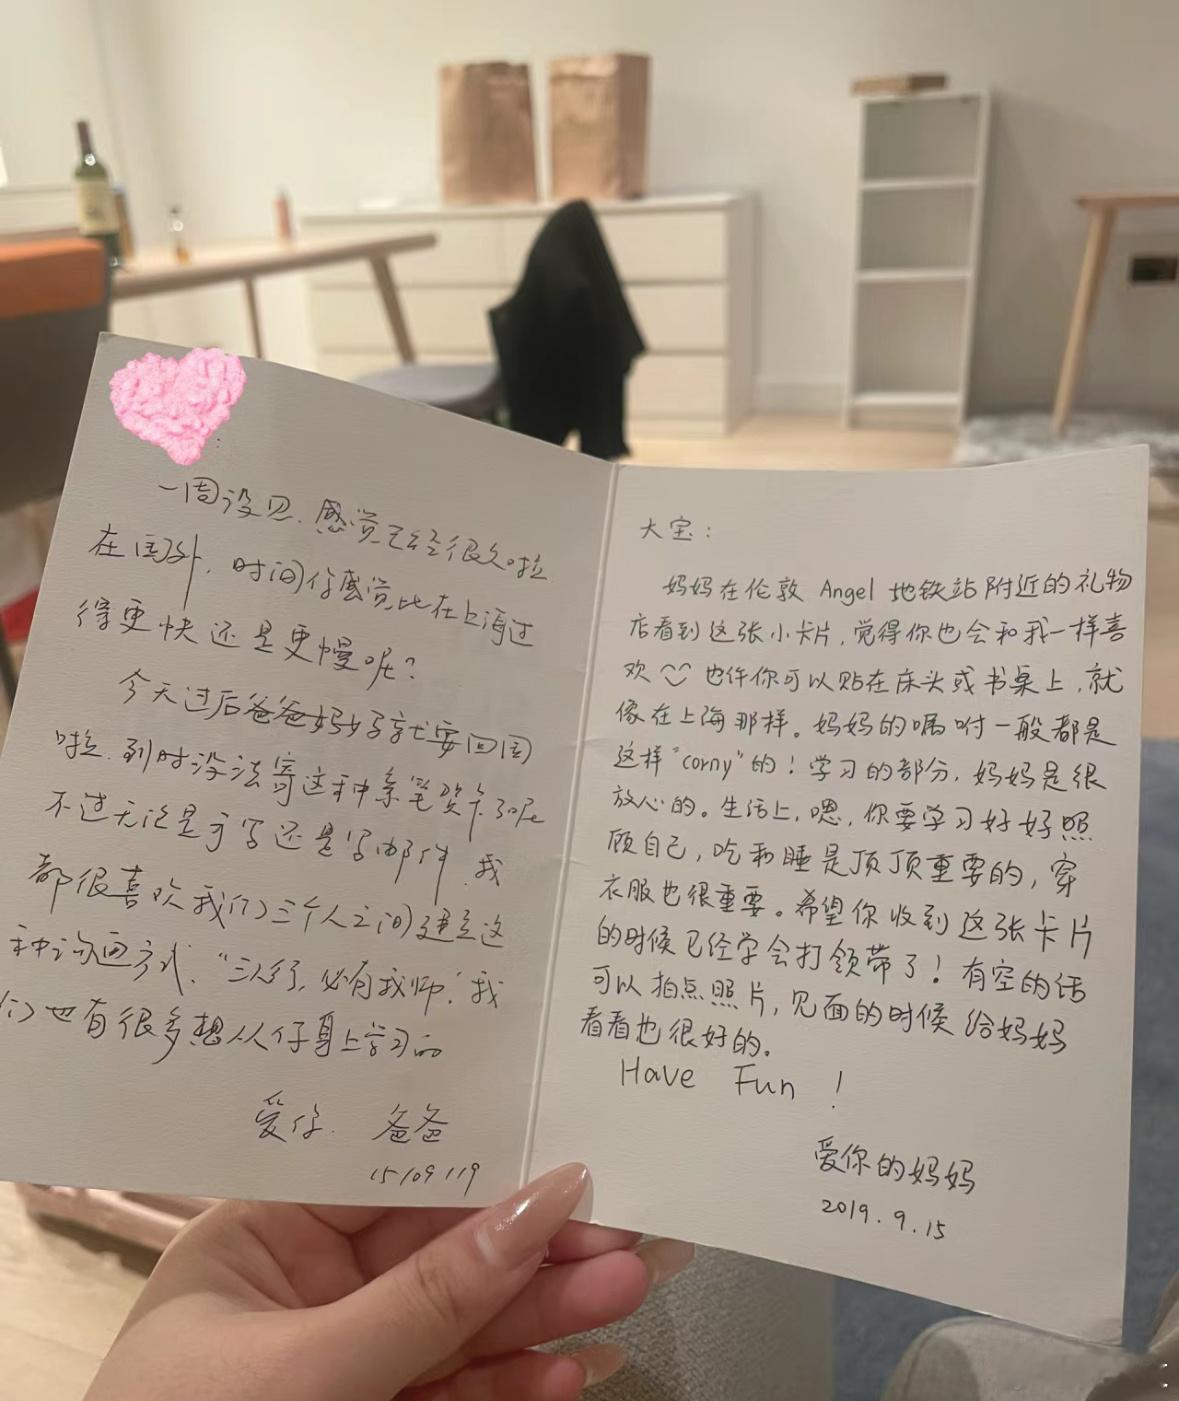 :
一周没见，感觉已经很久啦
在国外，时间你感觉比在上海过
得更快还是更慢呢？
今天过后爸爸妈妈就要回国
啦，到时没法寄这种亲笔贺卡了呢
不过无论是手写还是写邮件，我
都很喜欢我们三个人之间建立这
种沟通方式，“三人行，必有我师”，我
们也有很多想从你身上学习的
爱你 爸爸
15/09/19
大宝：
妈妈在伦敦 Angel 地铁站附近的礼物
店看到这张小卡片，觉得你也会和我一样喜
欢 也许你可以贴在床头或书桌上，就
像在上海那样。妈妈的嘱咐一般都是
这样“corny”的！学习的部分，妈妈是很
放心的。生活上，嗯，你要学习好好照
顾自己，吃和睡是顶顶重要的，穿
衣服也很重要。希望你收到这张卡片
的时候已经学会打领带了！有空的话
可以拍点照片，见面的时候给妈妈
看看也很好的。
Have Fun !
爱你的妈妈
2019.9.15